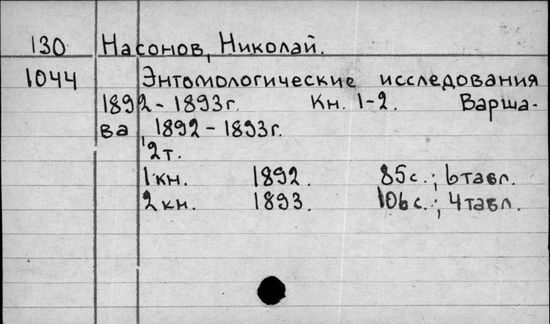 130 Насонов, Николай.
1044 Энтомологические исследования
1892-1893г. Кн. 1-2. Варша-
ва, 1892-1893г.
2т.
1 кн. 1892. 85с.; 6табл.
2 кн. 1893. 106с.; 4табл.